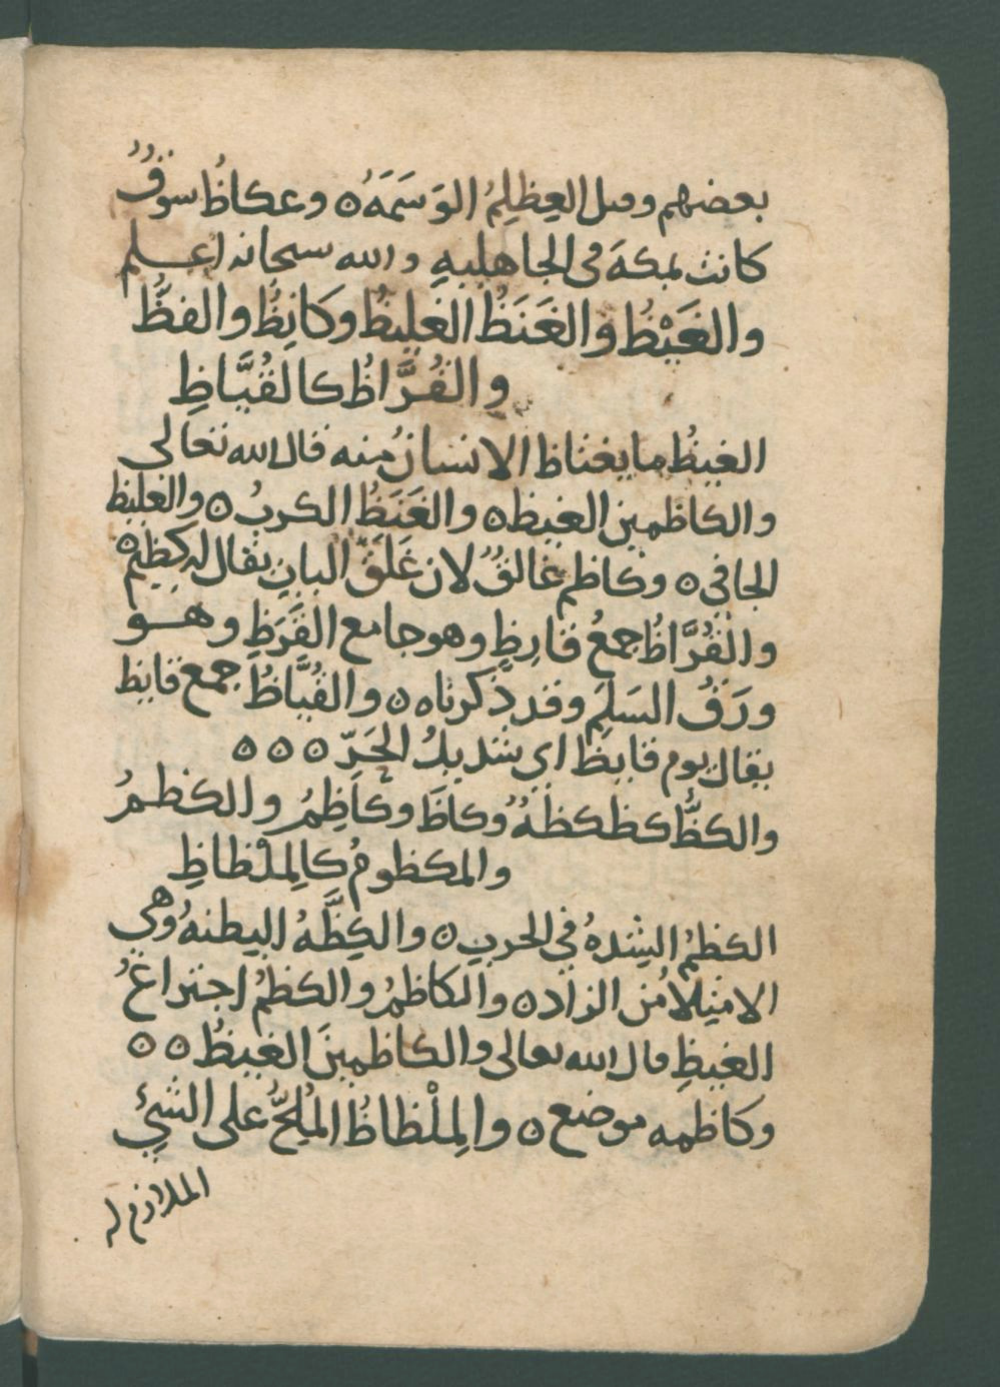 بعضهم وقيل العِظلِمُ الوَسَمَهُ ه وعكاظُ سوقٌ
كانت بمكهَ في الجاهليهِ والله سبحانه اعلم
والغَيْظُ والغَنَظُ الغليظُ وكَانِظُ والفظُّ
والقُرَّاظُ كالقُيَّاظِ
الغيظُ ما يغتاظ الانسانُ منه قال الله تعالى
والكاظمين الغيظ ه والغَنَظُ الكربُ ه والغليظ
الجافي ه وكاظم غالقٌ لان غَلَقَ الباب يقال له كظيم ه
والقُرَّاظُ جمعُ قارِظٍ وهو جامع القَرَظِ وهو
ورَقُ السَلَمِ وقد ذكرناه ه ه والقُيَّاظُ جمع قايظ
يقال يوم قايظ اي شديدُ الحَرِّ ه ه ه
والكظُّ كظكظهٌ وكاظَ وكاظِمُ والكظمُ
والمكظومُ كالمِلْظاظِ
الكظمُ الشِدهُ في الحربِ ه والكِظَّهُ البطنهُ وهي
الامتلاُ من الزاد ه والكاظمُ والكظمُ اجتراعُ
الغيظِ قال الله تعالى والكاظمينَ الغيظَ ه ه
وكاظمه موضع ه والمِلْظاظُ المُلِحُّ على الشيءِ
الملازم له